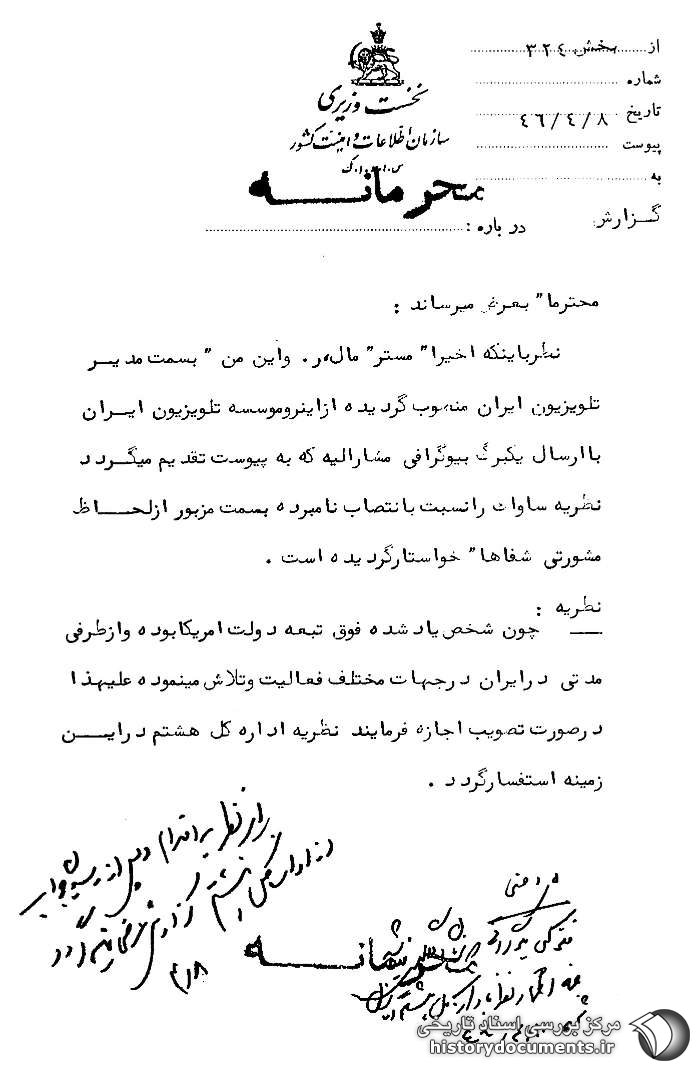 از ....... بخش ٣٢٤ .......
شماره ..............
تاریخ ٤٦/٤/٨
پیوست ..............
به ..............
گزارش
نخست وزیری
سازمان اطلاعات و امنیت کشور
س.ا.و.ا.ک
محرمانـــه
درباره : ..............
محترما" بعرض میرساند :
نظرباینکه اخیرا" مستر" مال،ر. واین من " بسمت مدیـر
تلویزیون ایران منصوب گردیده ازاینروموسسه تلویزیون ایـران
باارسال یکبرگ بیوگرافی مشارالیه که به پیوست تقدیم میگـردد
نظریه ساواک رانسبت بانتصاب نامبرده بسمت مزبور ازلحــاظ
مشورتی شفاها" خواستارگردیده است .
نظریه :
چون شخص یادشده فوق تبعه دولت امریکابوده وازطرفی
مدتی درایران درجهات مختلف فعالیت وتلاش مینموده علیهذا
درصورت تصویب اجازه فرمایند نظریه اداره کل هشتم دراینن
زمینه استفسارگردد .
از اداره کل هشتم گزارش
محرمانـــه
مرکز بررسی اسناد تاریخی
historydocuments.ir